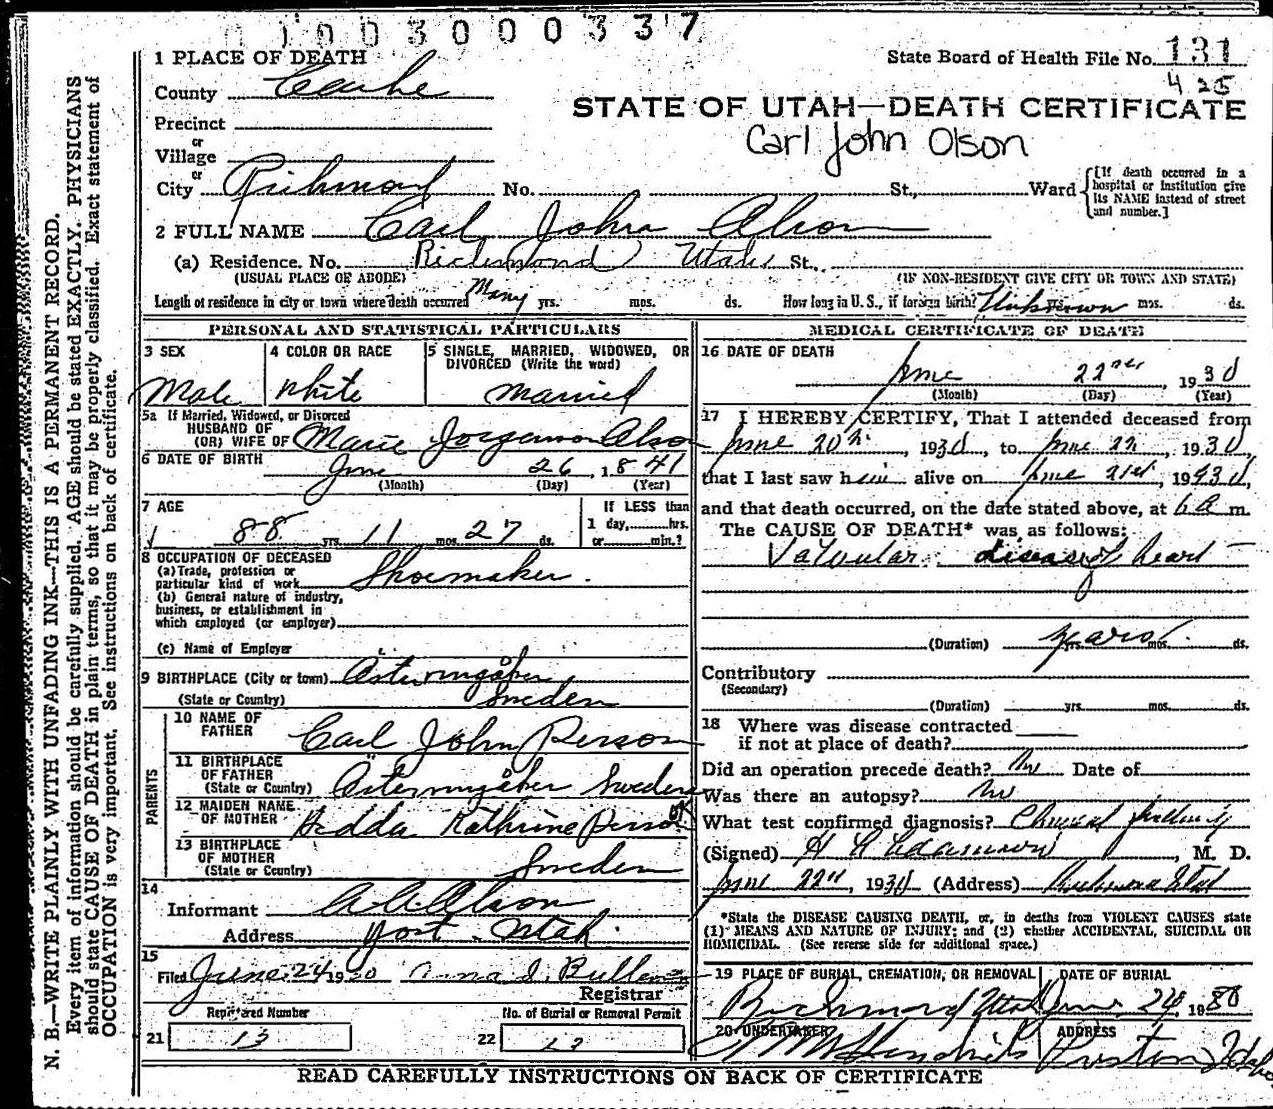 3000337
1 PLACE OF DEATH
State Board of Health File No. 131
County Cache
425
STATE OF UTAH—DEATH CERTIFICATE
Precinct
Carl John Olson
or
Village
or
City Richmond No. St., Ward
[If death occurred in a hospital or institution give its NAME instead of street and number.]
2 FULL NAME Carl John Olson
(a) Residence, No. Richmond Utah St.,
(USUAL PLACE OF ABODE) (IF NON-RESIDENT GIVE CITY OR TOWN AND STATE)
Length of residence in city or town where death occurred Many yrs. mos. ds. How long in U. S., if foreign birth? Unknown yrs. mos. ds.
PERSONAL AND STATISTICAL PARTICULARS
3 SEX
Male
4 COLOR OR RACE
White
5 SINGLE, MARRIED, WIDOWED, OR
DIVORCED (Write the word)
Married
5a If Married, Widowed, or Divorced
HUSBAND OF
(OR) WIFE OF Marie Olson
6 DATE OF BIRTH June 26, 1841
(Month) (Day) (Year)
7 AGE
88 yrs. 11 mos. 27 ds.
If LESS than
1 day, hrs.
or min.?
8 OCCUPATION OF DECEASED
(a) Trade, profession or
particular kind of work Shoemaker.
(b) General nature of industry,
business, or establishment in
which employed (or employer)
(c) Name of Employer
9 BIRTHPLACE (City or town)
(State or Country) Sweden
PARENTS
10 NAME OF
FATHER Carl John Person
11 BIRTHPLACE
OF FATHER
(State or Country) Sweden
12 MAIDEN NAME
OF MOTHER Hedda Kathrine Person
OK
13 BIRTHPLACE
OF MOTHER
(State or Country) Sweden
14
Informant Olson
Address Yost Utah.
15
Filed June 24 1930
Registrar
Registered Number
21 13
No. of Burial or Removal Permit
22 13
MEDICAL CERTIFICATE OF DEATH
16 DATE OF DEATH
June 22nd, 1930
(Month) (Day) (Year)
17 I HEREBY CERTIFY, That I attended deceased from
June 20th, 1930, to June 22, 1930,
that I last saw him alive on June 21st, 1930,
and that death occurred, on the date stated above, at 6 a m.
The CAUSE OF DEATH* was as follows:
Valvular disease of heart
(Duration) years yrs. mos. ds.
Contributory
(Secondary)
(Duration) yrs. mos. ds.
18 Where was disease contracted
if not at place of death?
Did an operation precede death? No Date of
Was there an autopsy? No
What test confirmed diagnosis?
(Signed) M. D.
June 22nd, 1930 (Address) Richmond Utah
*State the DISEASE CAUSING DEATH, or, in deaths from VIOLENT CAUSES state
(1) MEANS AND NATURE OF INJURY; and (2) whether ACCIDENTAL, SUICIDAL OR
HOMICIDAL. (See reverse side for additional space.)
19 PLACE OF BURIAL, CREMATION, OR REMOVAL DATE OF BURIAL
Richmond Utah June 24, 1930
20 UNDERTAKER ADDRESS
Hendricks Preston Idaho
READ CAREFULLY INSTRUCTIONS ON BACK OF CERTIFICATE
N. B.—WRITE PLAINLY WITH UNFADING INK—THIS IS A PERMANENT RECORD.
Every item of information should be carefully supplied. AGE should be stated EXACTLY. PHYSICIANS
should state CAUSE OF DEATH in plain terms, so that it may be properly classified. Exact statement of
OCCUPATION is very important. See instructions on back of certificate.